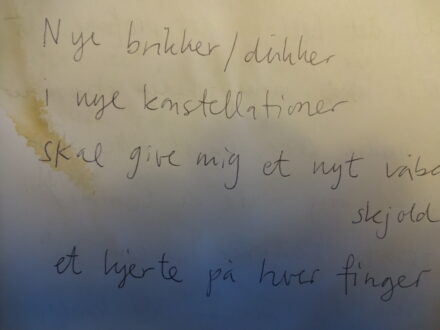 Nye brikker/dukker
i nye konstellationer
skal give mig et nyt våbe
skjold
et hjerte på hver finger